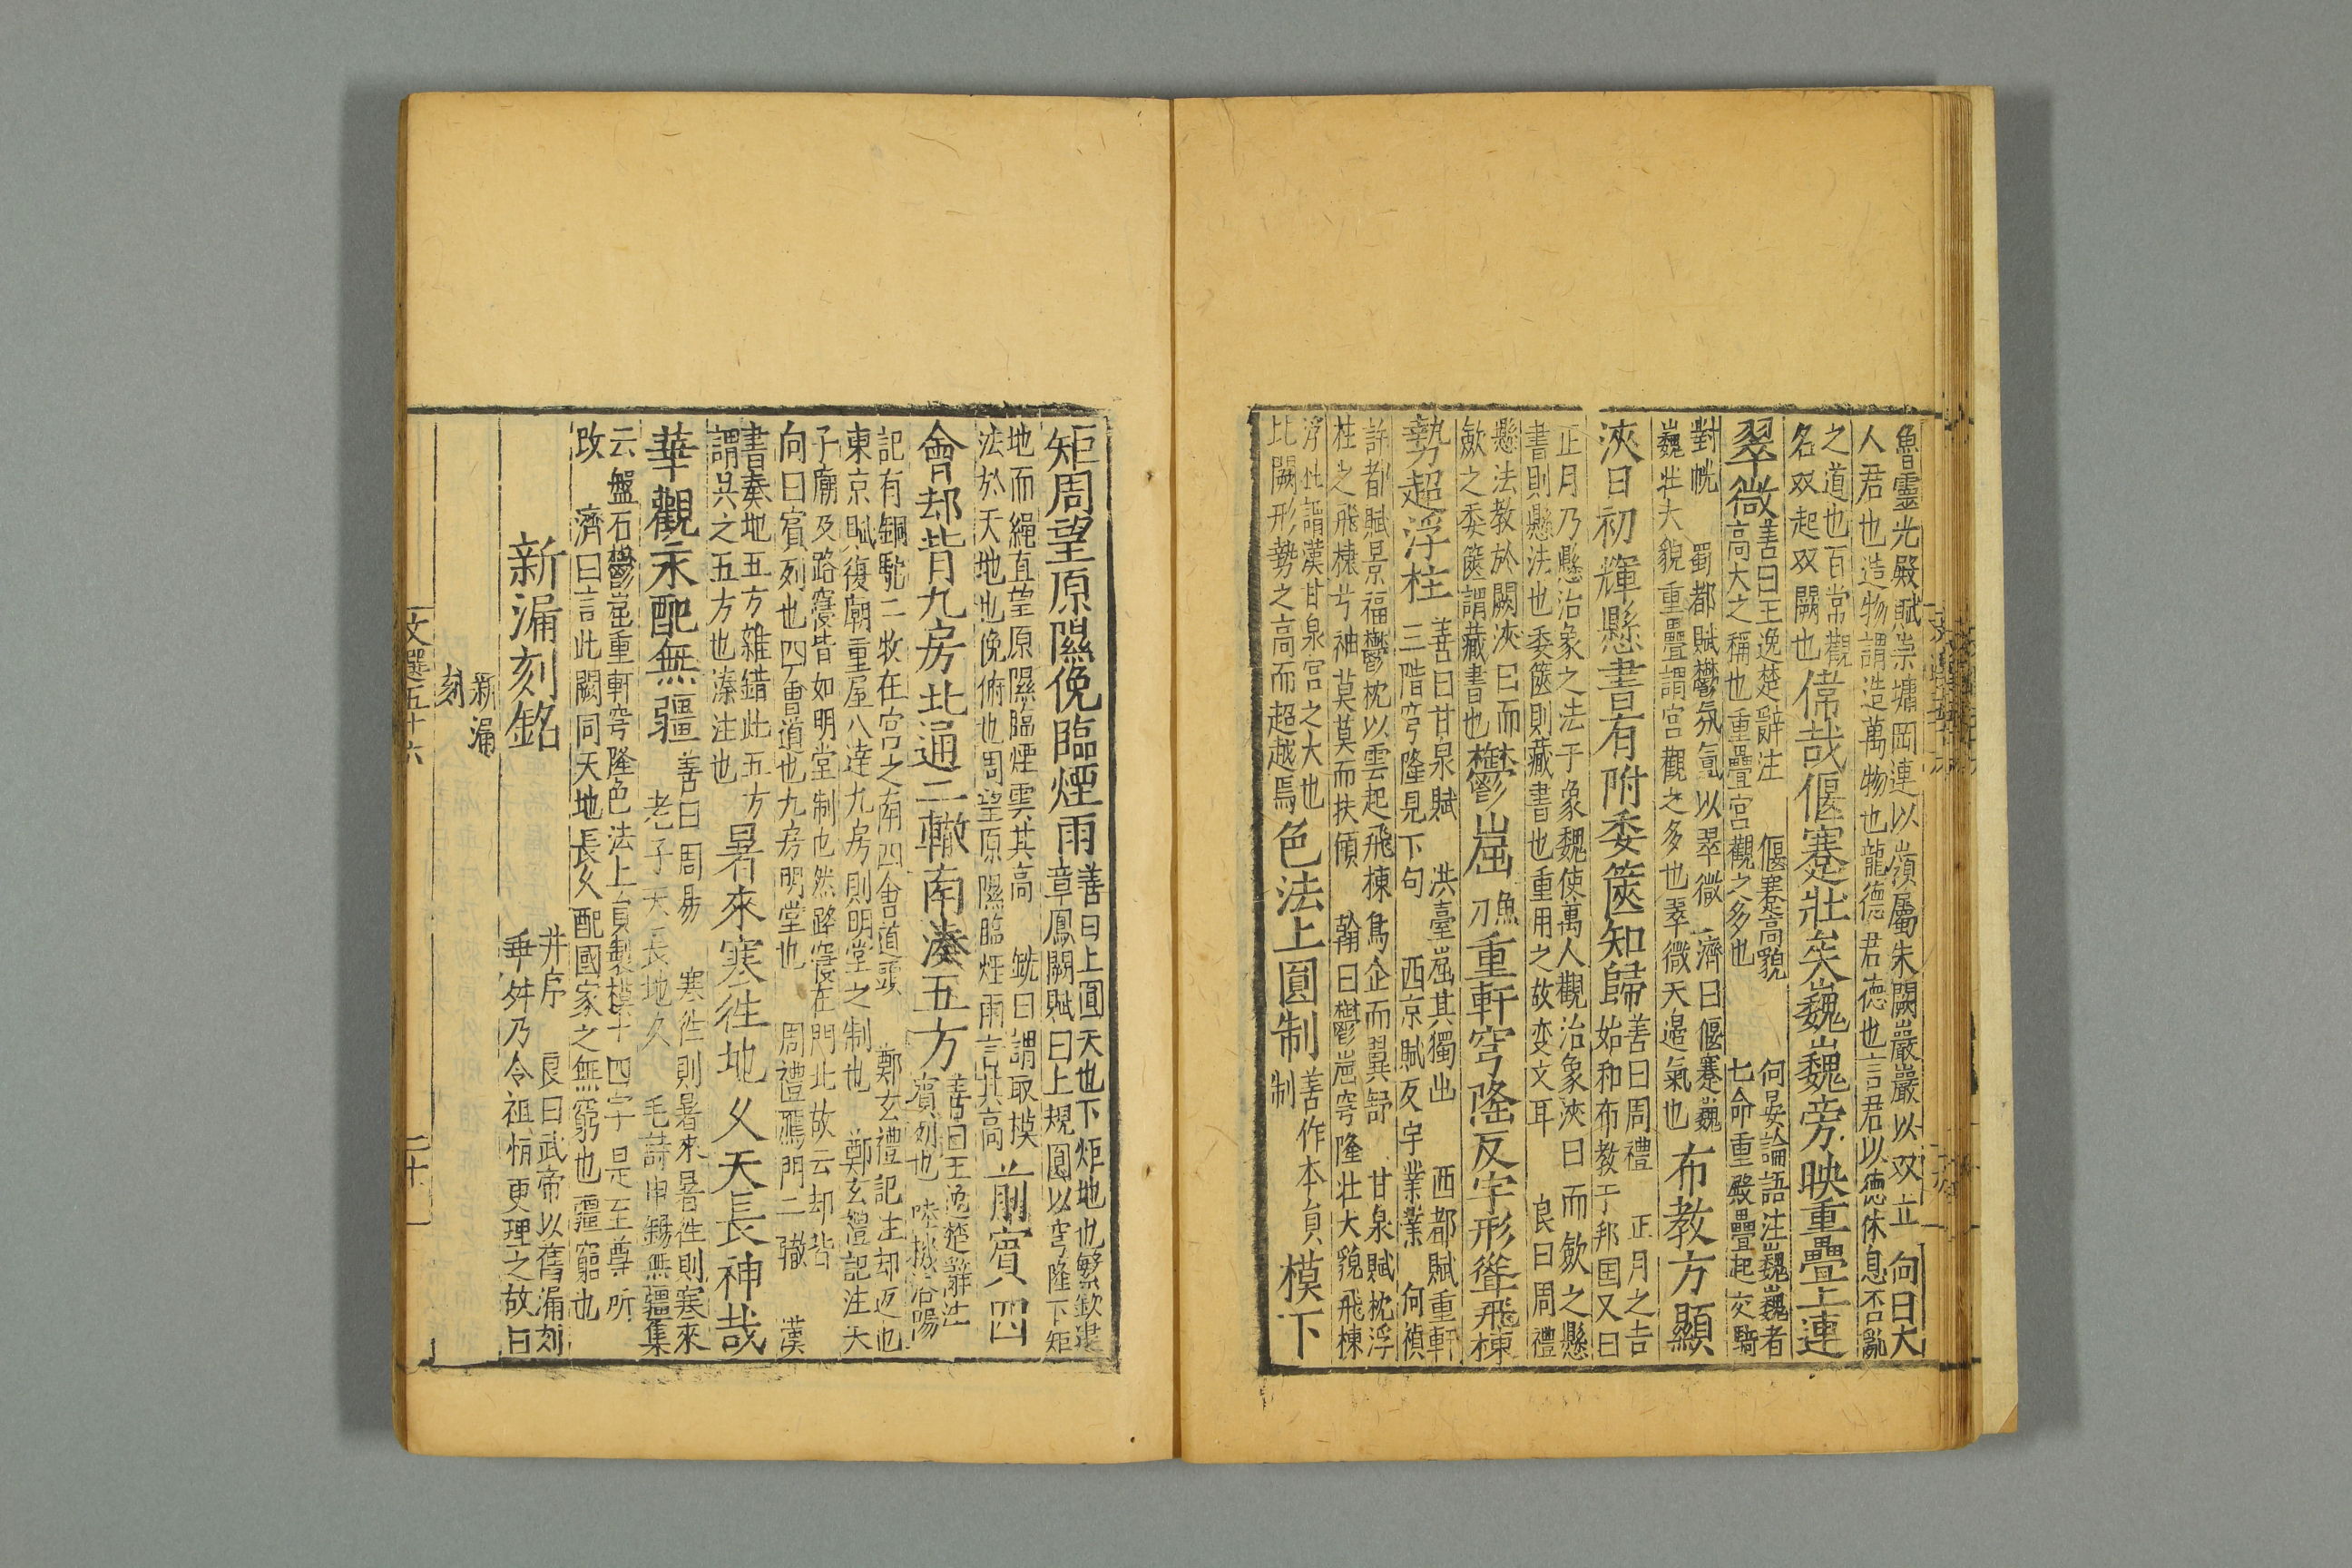 魯靈光殿賦崇墉岡連以嶺屬朱闕巖巖以双立　向曰大
人君也造物謂造萬物也龍德君德也言君以德休息否亂
之道也百常觀
名双起双闕也
偉哉偃蹇壯矣巍巍旁映重疊上連
翠微
善曰王逸楚辭注　偃蹇高貌　何晏論語注巍巍者
高大之稱也重疊宮觀之多也　七命重殿疊起交騎
對幌　蜀都賦鬱氛氳以翠微　濟曰偃蹇巍
巍壯大貌重疊謂宮觀之多也翠微天邊氣也
布教方顯
浹日初輝懸書有附委篋知歸
善曰周禮　正月之吉
始和布教于邦国又曰
正月乃懸治象之法于象魏使萬人觀治象浹日而斂之懸
書則懸法也委篋則藏書也重用之故变文耳　良曰周禮
懸法教於闕浹日而
斂之委篋謂藏書也
鬱崫
魚
刀
重軒穹隆反宇形聳飛棟
勢超浮柱
善曰甘泉賦　洪臺崫其獨出　西都賦重軒
三階穹隆見下句　西京賦反宇業業　何禎
許都賦景福鬱杬以雲起飛棟鳥企而翼舒　甘泉賦杬浮
柱之飛榱兮神莫莫而扶傾　翰曰鬱崫穹隆壯大貌飛棟
浮柱謂漢甘泉宮之大也
比闕形勢之高而超越焉
色法上圓制
善作本貟
制
模下
矩周望原隰俛臨煙雨
善曰上圓天也下矩地也繁欽建
章鳳闕賦曰上規圓以穹隆下矩
地而繩直望原隰臨煙雲其高　銑曰謂取模
法於天地也俛俯也周望原隰臨煙雨言其高
前賓四
會却背九房北通二轍南湊五方
善曰王逸楚辭注
賓列也　陸機洛陽
記有銅駝二牧在宮之南四會道頭　鄭玄禮記注却返也
東京賦復廟重屋八達九房則明堂之制也　鄭玄禮記注天
子廟及路寢皆如明堂制也然路寢在門北故云却背　漢
向曰賓列也四會道也九房明堂也　周禮應門二轍
書奏地五方雜錯此五方
謂吳之五方也湊注也
暑來寒徃地久天長神哉
華觀永配無疆
善曰周易　寒徃則暑來暑徃則寒來
老子天長地久　毛詩申錫無疆集
云盤石鬱崫重軒穹隆色法上貟製模十四字是至尊所
改　濟曰言此闕同天地長久配國家之無窮也疆窮也
新漏刻銘
并序　良曰武帝以舊漏刻
乖舛乃令祖恒更理之故曰
新漏
刻
文選五十六
二十